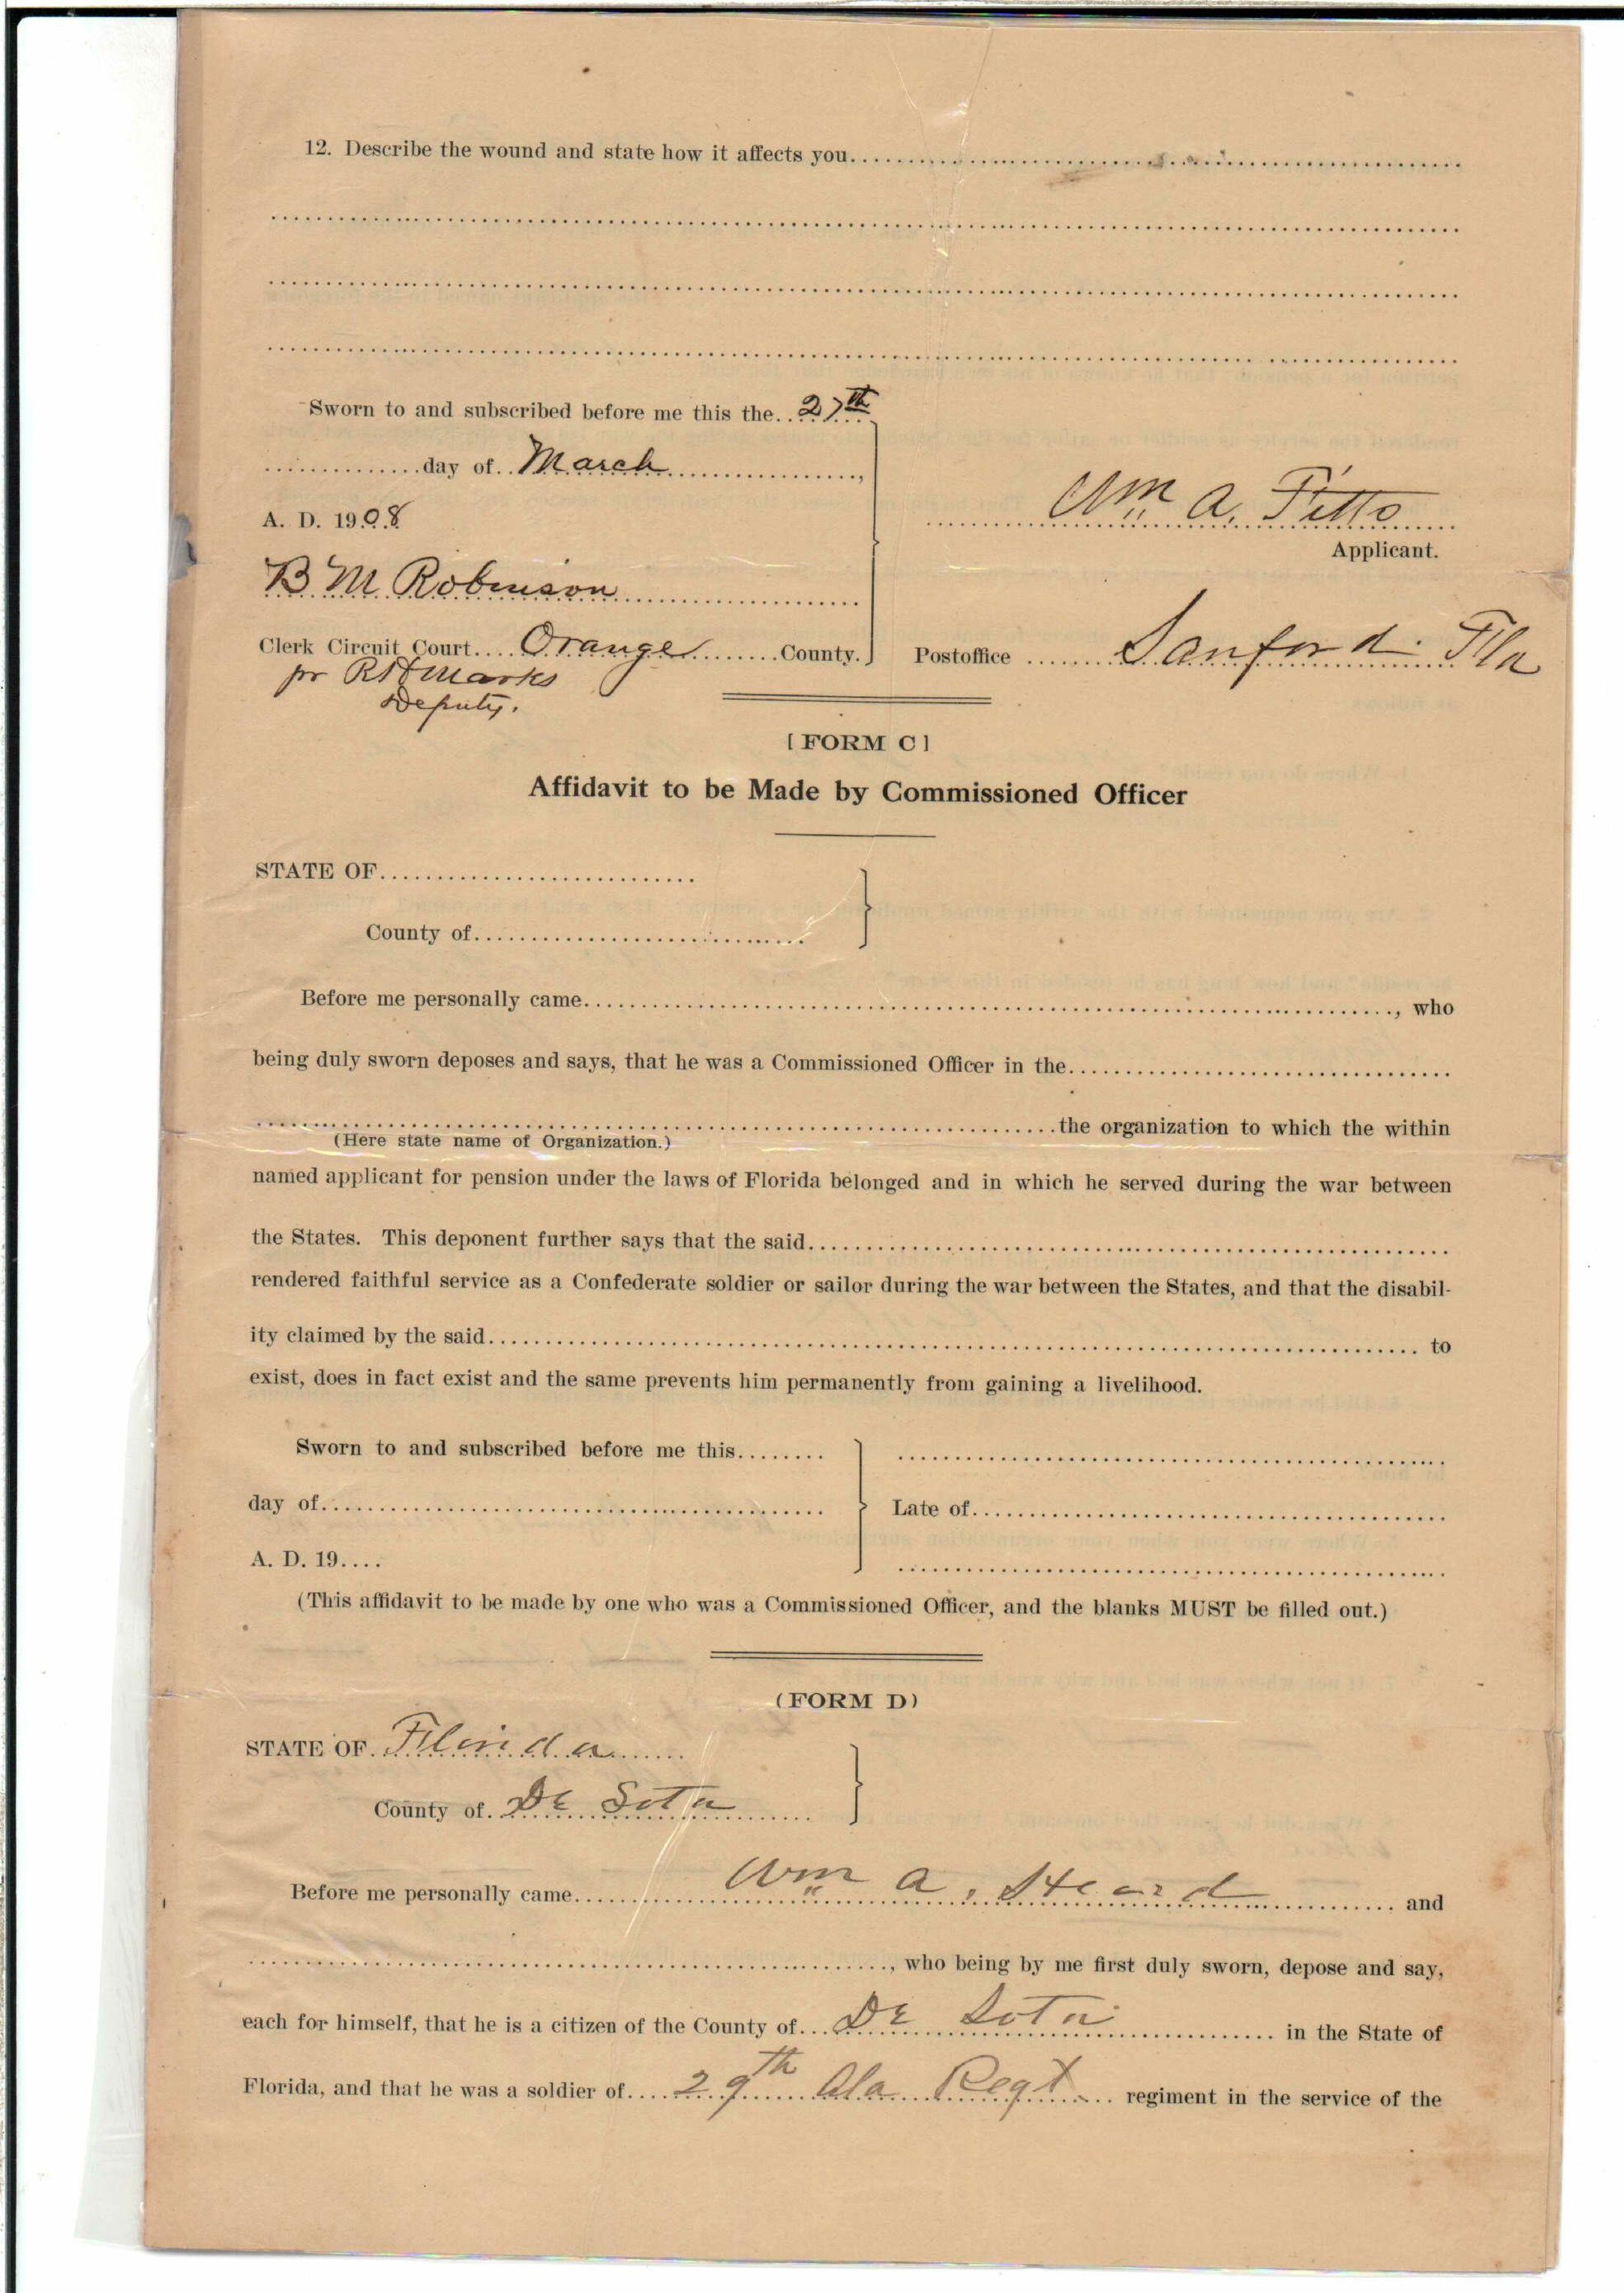 12. Describe the wound and state how it affects you
Sworn to and subscribed before me this the 27th
day of March,
A. D. 1908
Wm A. Fitts
Applicant.
B M Robinson
Clerk Circuit Court Orange County. Postoffice Sanford Fla
pr R H Marks
Deputy.
[FORM C]
Affidavit to be Made by Commissioned Officer
STATE OF
County of
Before me personally came, who
being duly sworn deposes and says, that he was a Commissioned Officer in the
the organization to which the within
(Here state name of Organization.)
named applicant for pension under the laws of Florida belonged and in which he served during the war between
the States. This deponent further says that the said
rendered faithful service as a Confederate soldier or sailor during the war between the States, and that the disabil-
ity claimed by the said to
exist, does in fact exist and the same prevents him permanently from gaining a livelihood.
Sworn to and subscribed before me this
day of Late of
A. D. 19
(This affidavit to be made by one who was a Commissioned Officer, and the blanks MUST be filled out.)
(FORM D)
STATE OF Florida
County of De Soto
Before me personally came Wm A. and
, who being by me first duly sworn, depose and say,
each for himself, that he is a citizen of the County of De Soto in the State of
Florida, and that he was a soldier of 29th Ala Regt regiment in the service of the